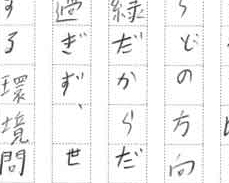 らどの方向
緑だからだ
過ぎず、世
する環境問